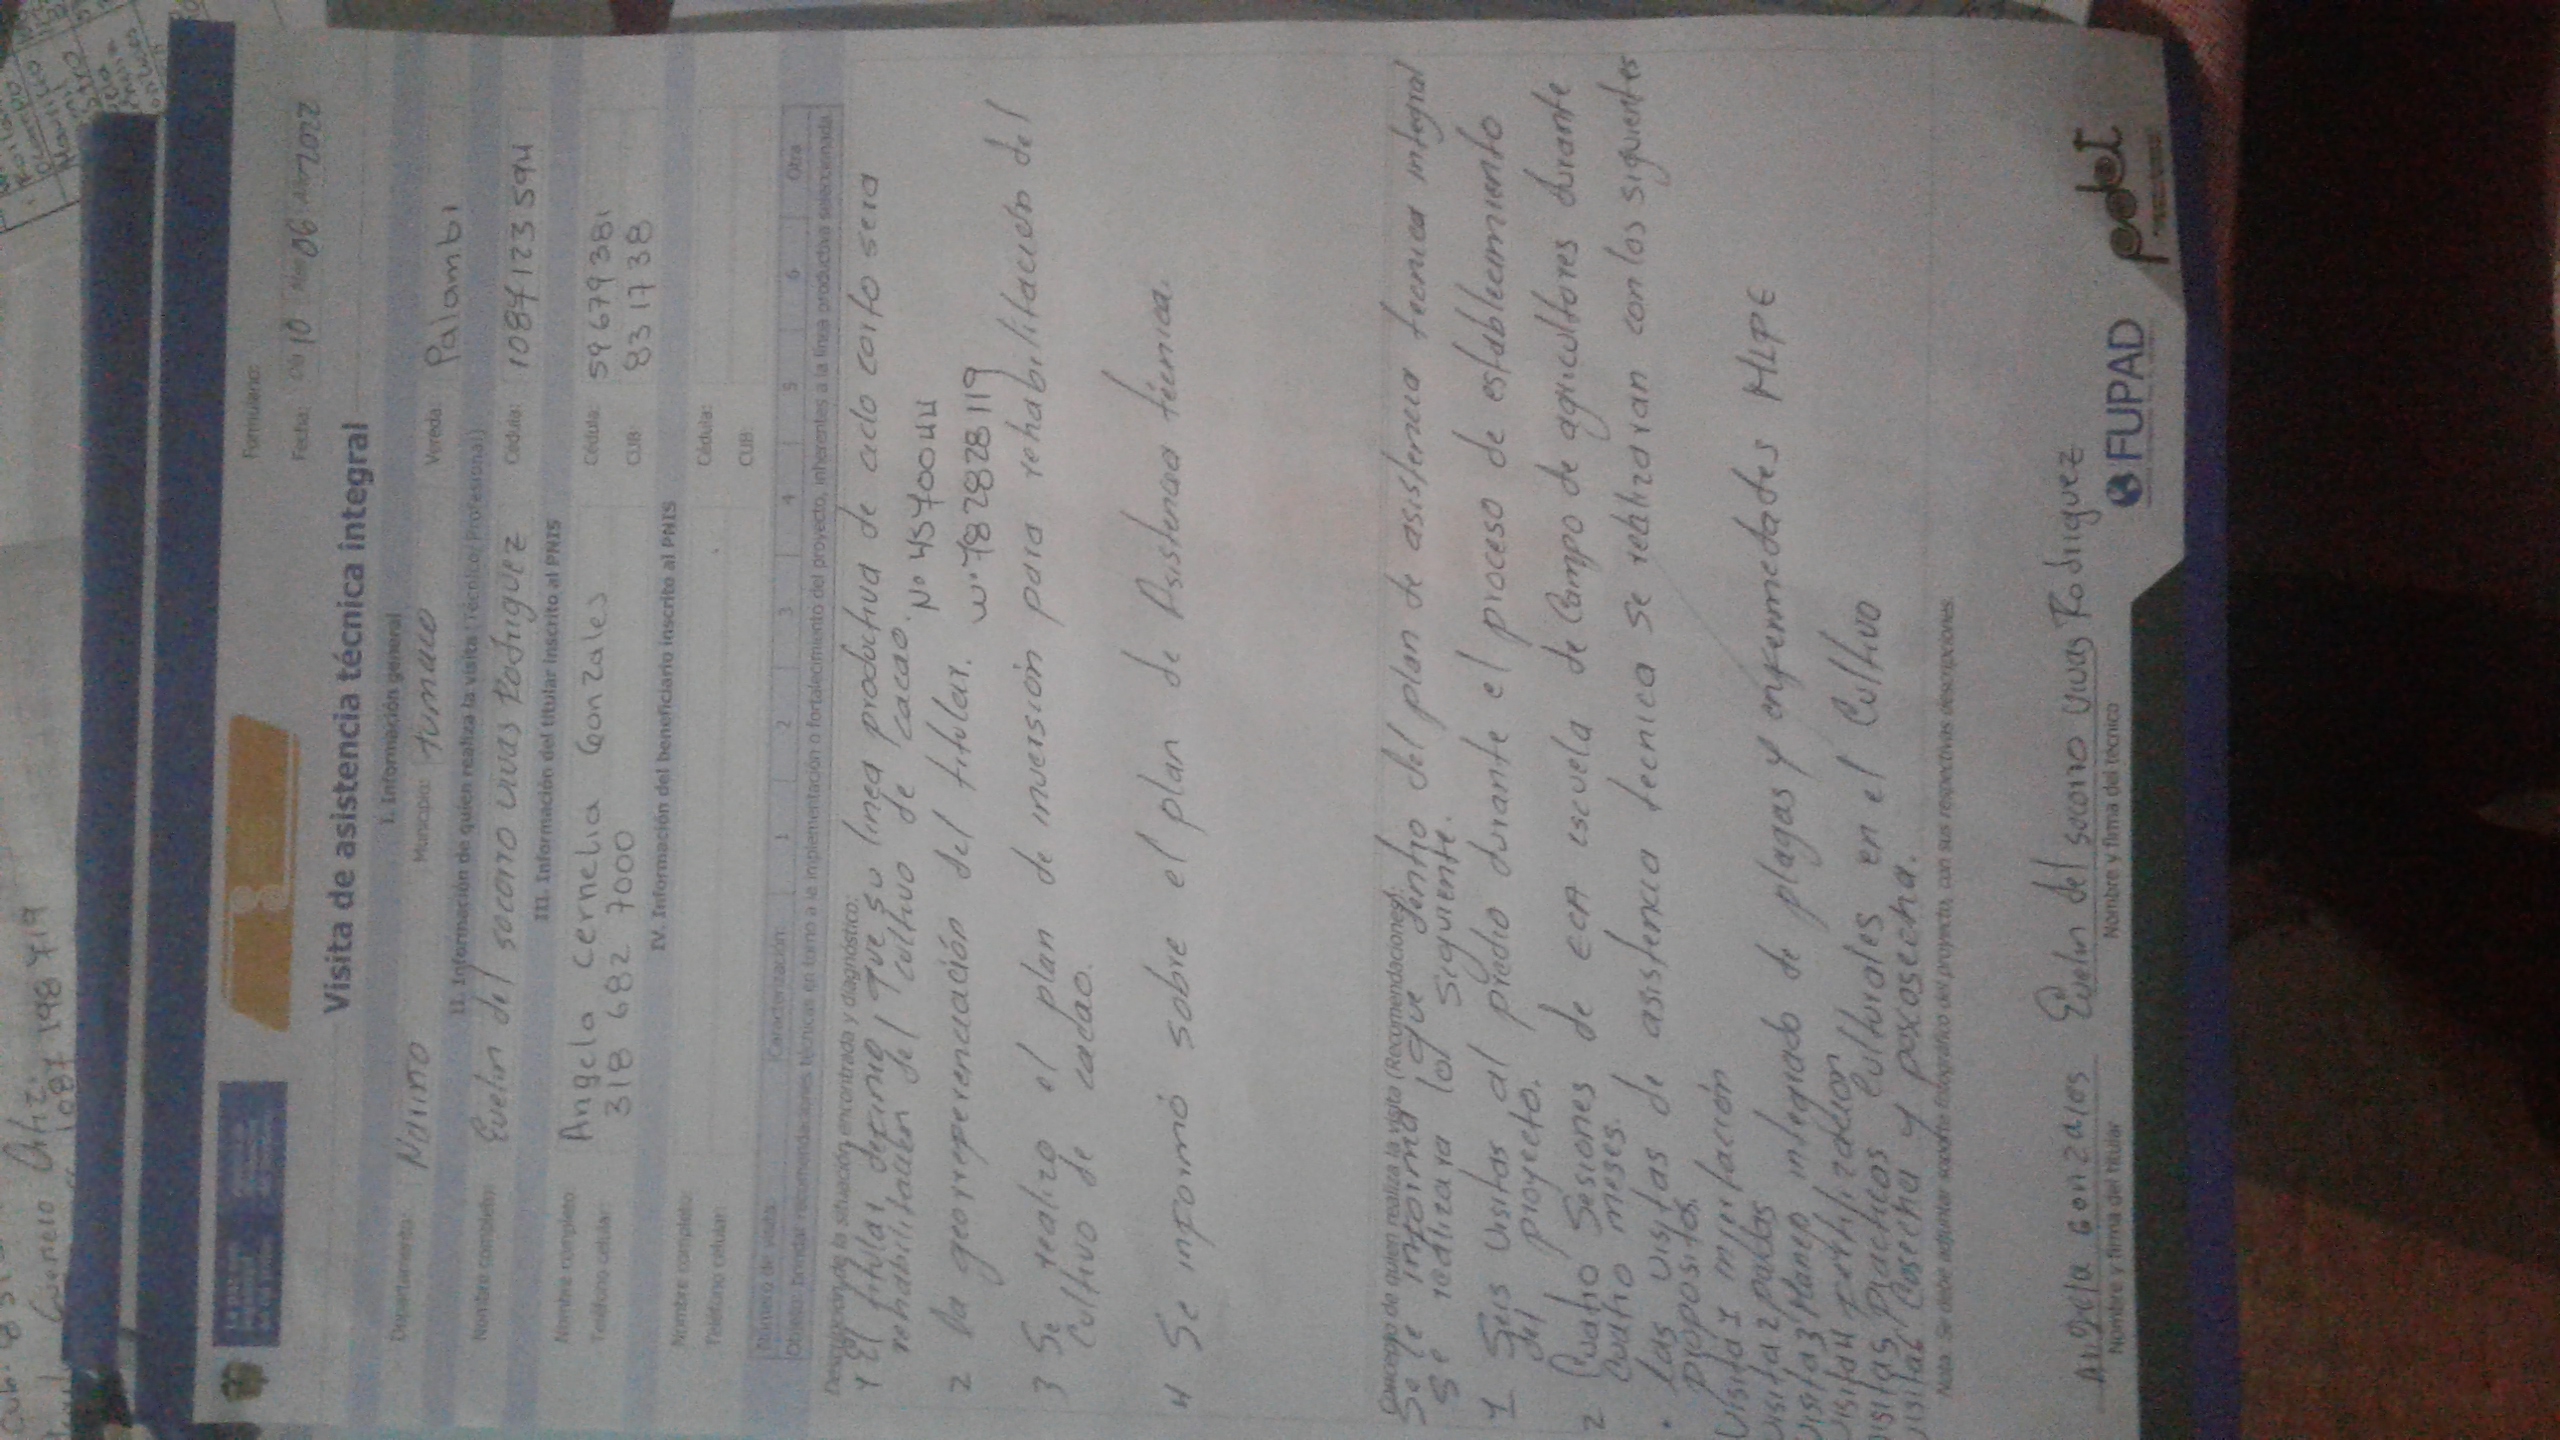 Formulario:
Fecha: DD 10 MM 06 AAAA 2022
Visita de asistencia técnica integral
I. Información general
Departamento: Nariño Municipio: tumaco Vereda: Palambi
II. Información de quien realiza la visita (Técnico/ Profesional)
Nombre completo: Evelin del socorro vivas Rodriguez Cédula: 1087123594
III. Información del titular inscrito al PNIS
Nombre completo: Angela cernelia Gonzales Cédula: 59679381
Teléfono celular: 318 682 7000 CUB: 831738
IV. Información del beneficiario inscrito al PNIS
Nombre completo: Cédula:
Teléfono celular: CUB:
Número de visita: Caracterización: 1 2 3 4 5 6 Otra
Objeto: brindar recomendaciones técnicas en torno a la implementación o fortalecimiento del proyecto, inherentes a la línea productiva seleccionada.
Descripción de la situación encontrada y diagnóstico:
1 El titular definio que su linea productiva de ciclo corto sera
rehabilitación del cultivo de cacao.
2 la georreferenciación del titular. N° 4570044
W-78 2828 119
3 Se realizo el plan de inversión para rehabilitación del
Cultivo de cacao.
4 Se informó sobre el plan de Asistencia técnica.
Concepto de quien realiza la visita (Recomendaciones):
Se le informa que dentro del plan de asistencia tecnica integral
Se realizara lo siguiente.
1 Seis visitas al predio durante el proceso de establecimiento
del proyecto.
2 Cuatro Sesiones de ECA escuela de Campo de agricultores durante
cuatro meses.
• las visitas de asistencia tecnica se realizaran con los siguientes
propositos.
Visita 1 mirtación
visita 2 podas
visita 3 Manejo integrado de plagas y enfermedades MIPE
visita 4 fertilización
visita 5 Practicas Culturales en el Cultivo
visita 6 Cosecha y poscosecha.
Nota: Se debe adjuntar soporte fotográfico del proyecto, con sus respectivas descripciones.
Angela Gonzales Evelin del socorro vivas Rodriguez
Nombre y firma del titular Nombre y firma del técnico
FUPAD
pdet